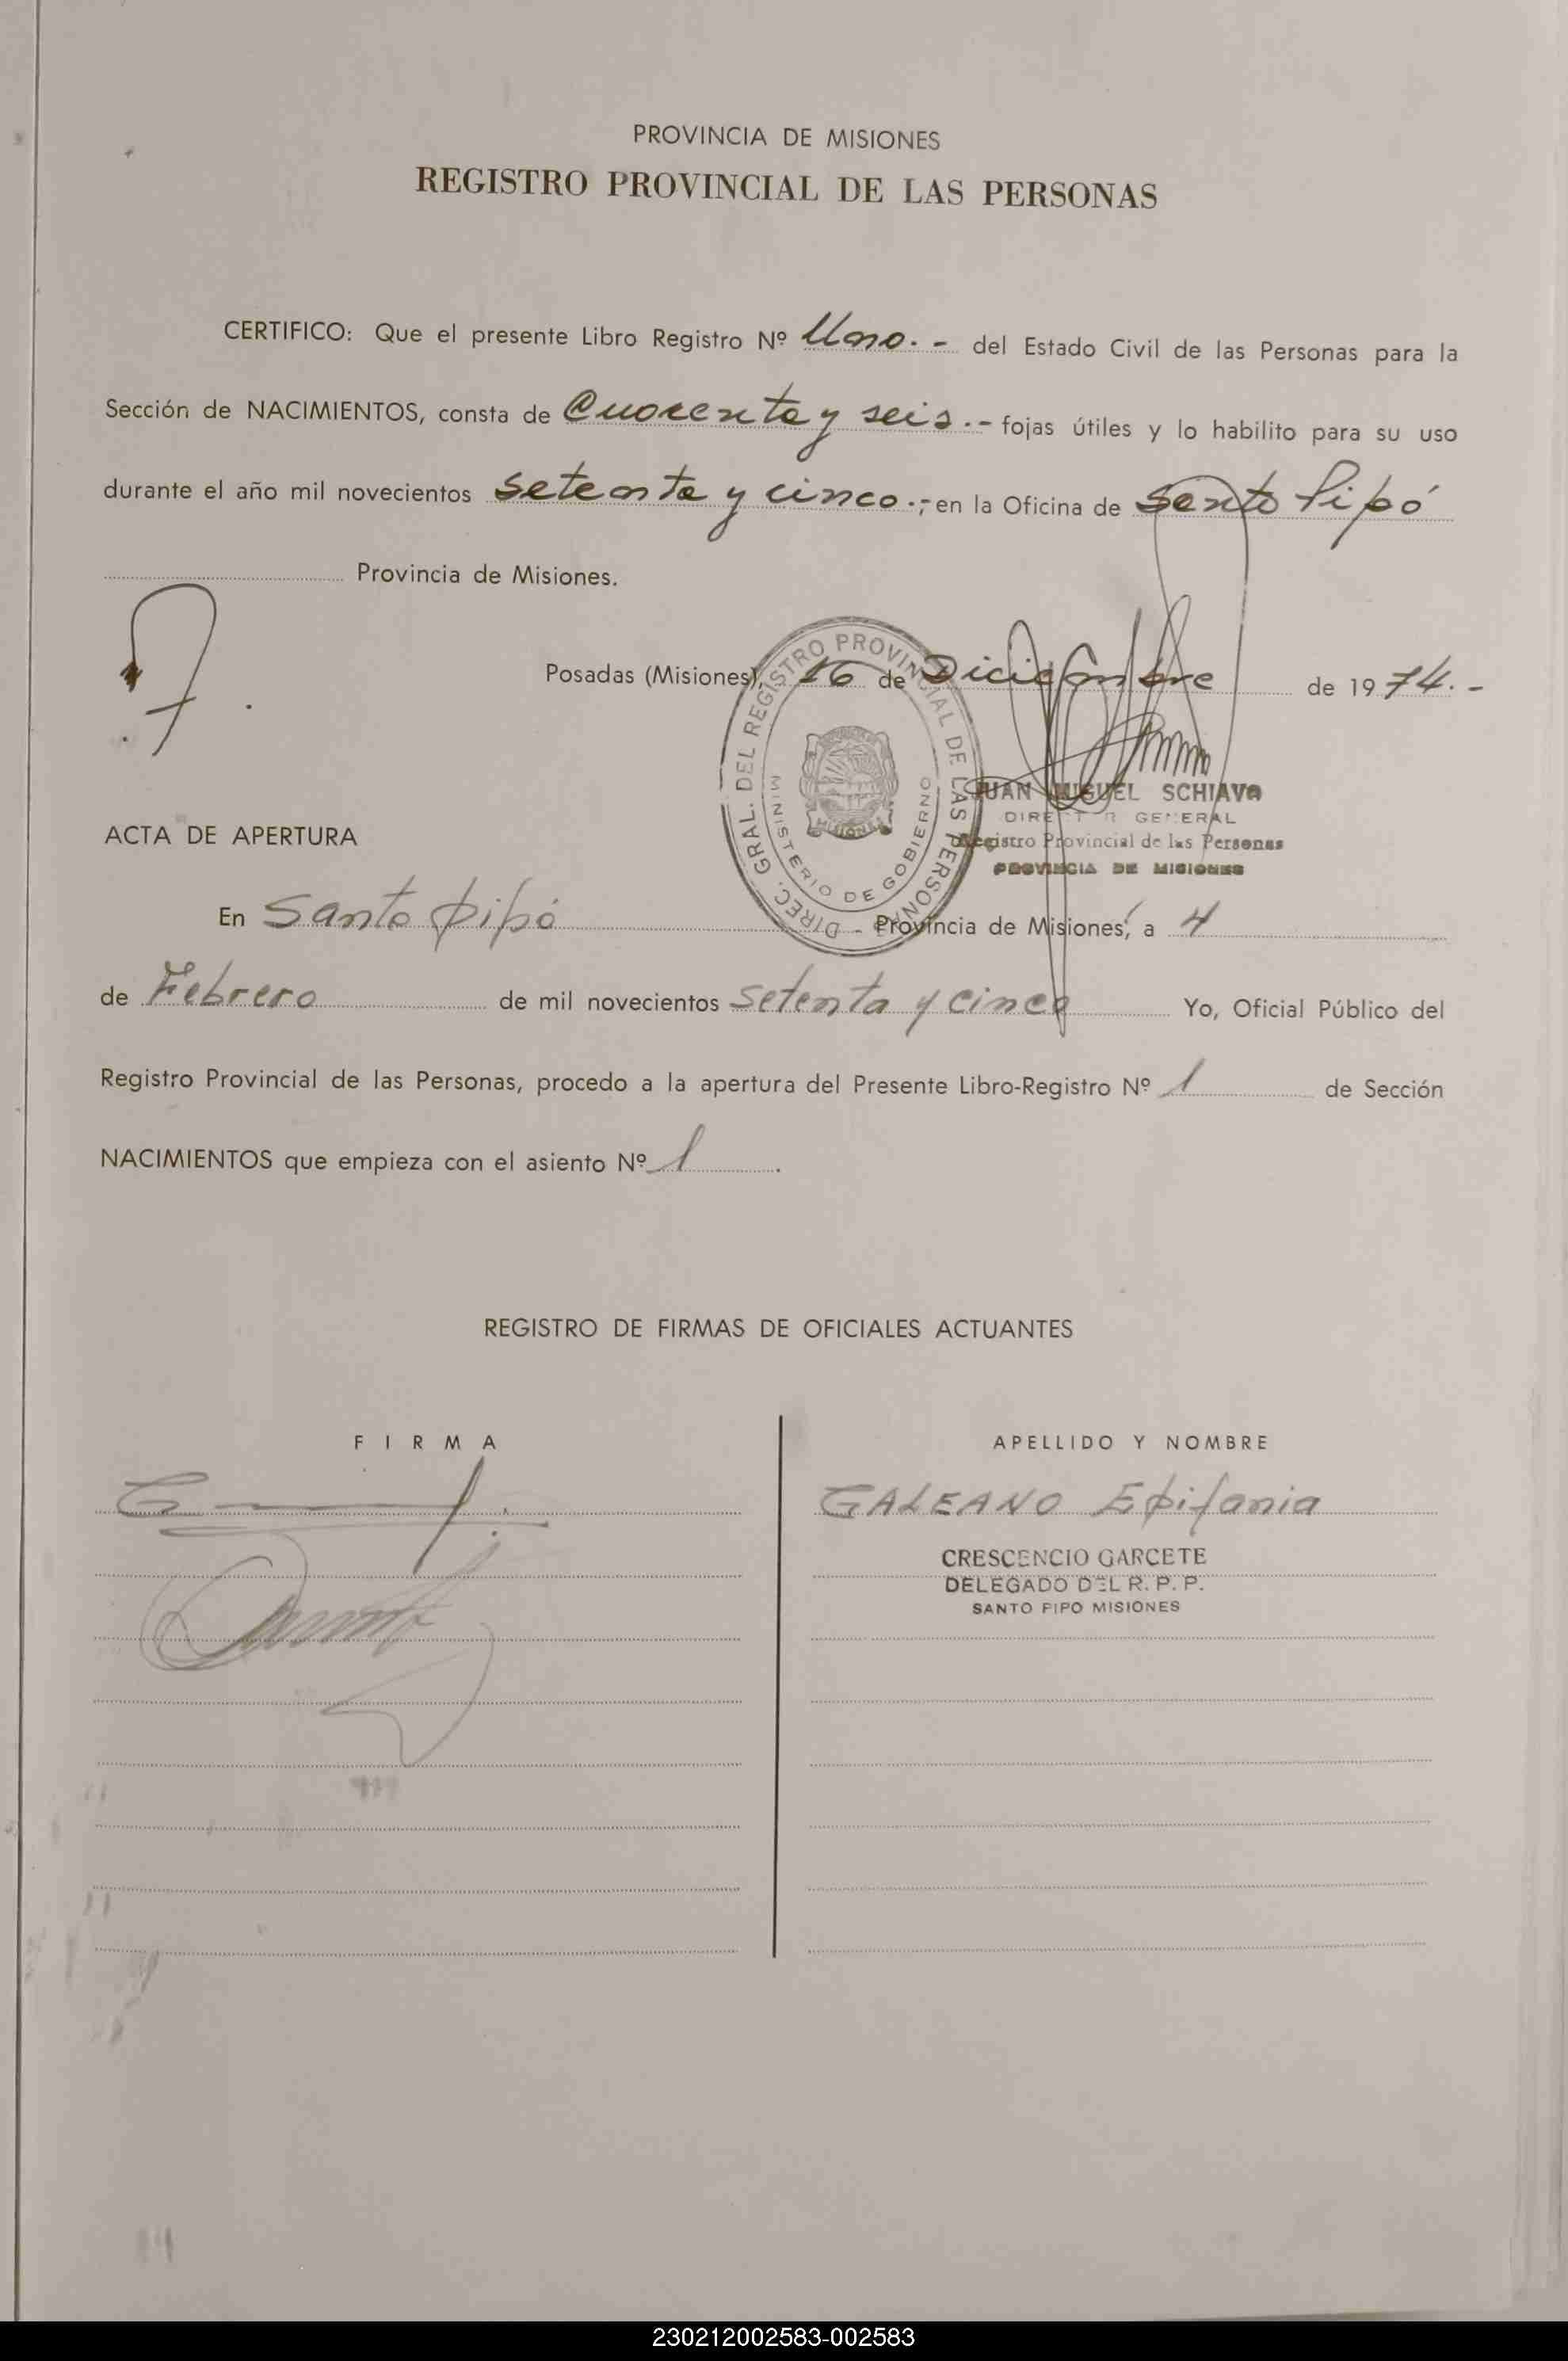 PROVINCIA DE MISIONES
REGISTRO PROVINCIAL DE LAS PERSONAS
CERTIFICO: Que el presente Libro Registro Nº Uno.- del Estado Civil de las Personas para la
Sección de NACIMIENTOS, consta de Cuarenta y seis.- fojas útiles y lo habilito para su uso
durante el año mil novecientos setenta y cinco.; en la Oficina de Santo Pipó
Provincia de Misiones.
Posadas (Misiones), 16 de Diciembre de 1974.-
DIREC. GRAL. DEL REGISTRO PROVINCIAL DE LAS PERSONAS
MINISTERIO DE GOBIERNO
MISIONES
JUAN MIGUEL SCHIAVO
DIRECTOR GENERAL
Registro Provincial de las Personas
PROVINCIA DE MISIONES
ACTA DE APERTURA
En Santo Pipó Provincia de Misiones, a 4
de Febrero de mil novecientos setenta y cinco Yo, Oficial Público del
Registro Provincial de las Personas, procedo a la apertura del Presente Libro-Registro Nº 1 de Sección
NACIMIENTOS que empieza con el asiento Nº 1.
REGISTRO DE FIRMAS DE OFICIALES ACTUANTES
FIRMA
APELLIDO Y NOMBRE
GALEANO Epifania
CRESCENCIO GARCETE
DELEGADO DEL R. P. P.
SANTO PIPO MISIONES
230212002583-002583